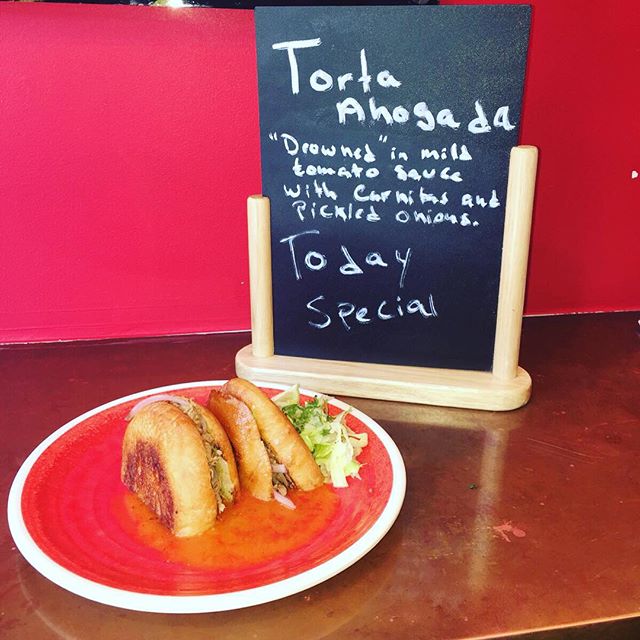 Torta
Ahogada
"Drowned" in mild
tomato sauce
with Carnitas and
Pickled onions.
Today
Special